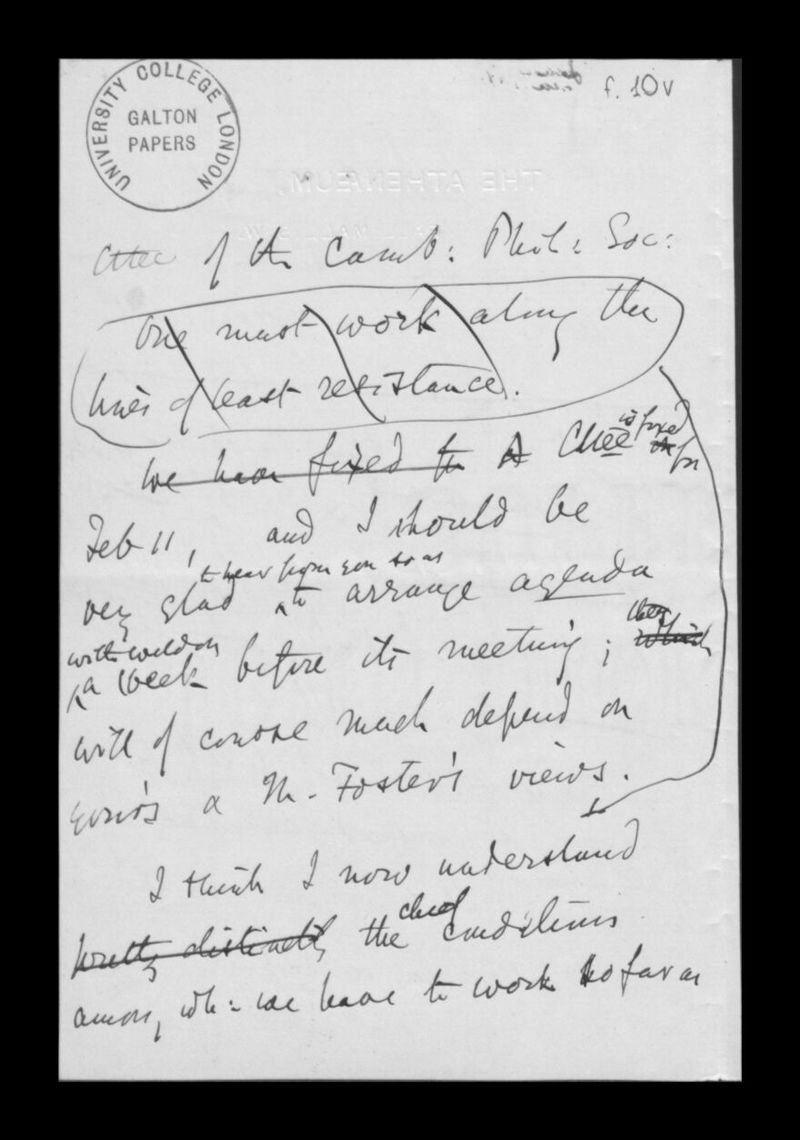 UNIVERSITY COLLEGE LONDON
GALTON
PAPERS
f. 10v
THE ATHENÆUM,
Cttee of the Camb: Phil: Soc:
One must work along the
lines of least resistance.
We have fixed the A Cttee is fixed for
Feb 11, and I should be
very glad to hear from you so as to arrange agenda
with Weldon a week before its meeting; they which
will of course much depend on
yours & M. Foster's views.
I think I now understand
pretty distinctly the chief conditions
among wh: we have to work so far as